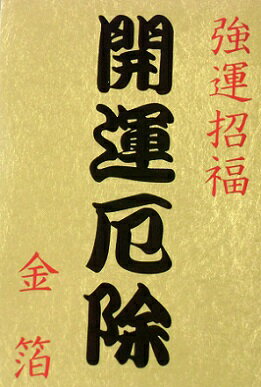 強運招福
開運厄除
金箔